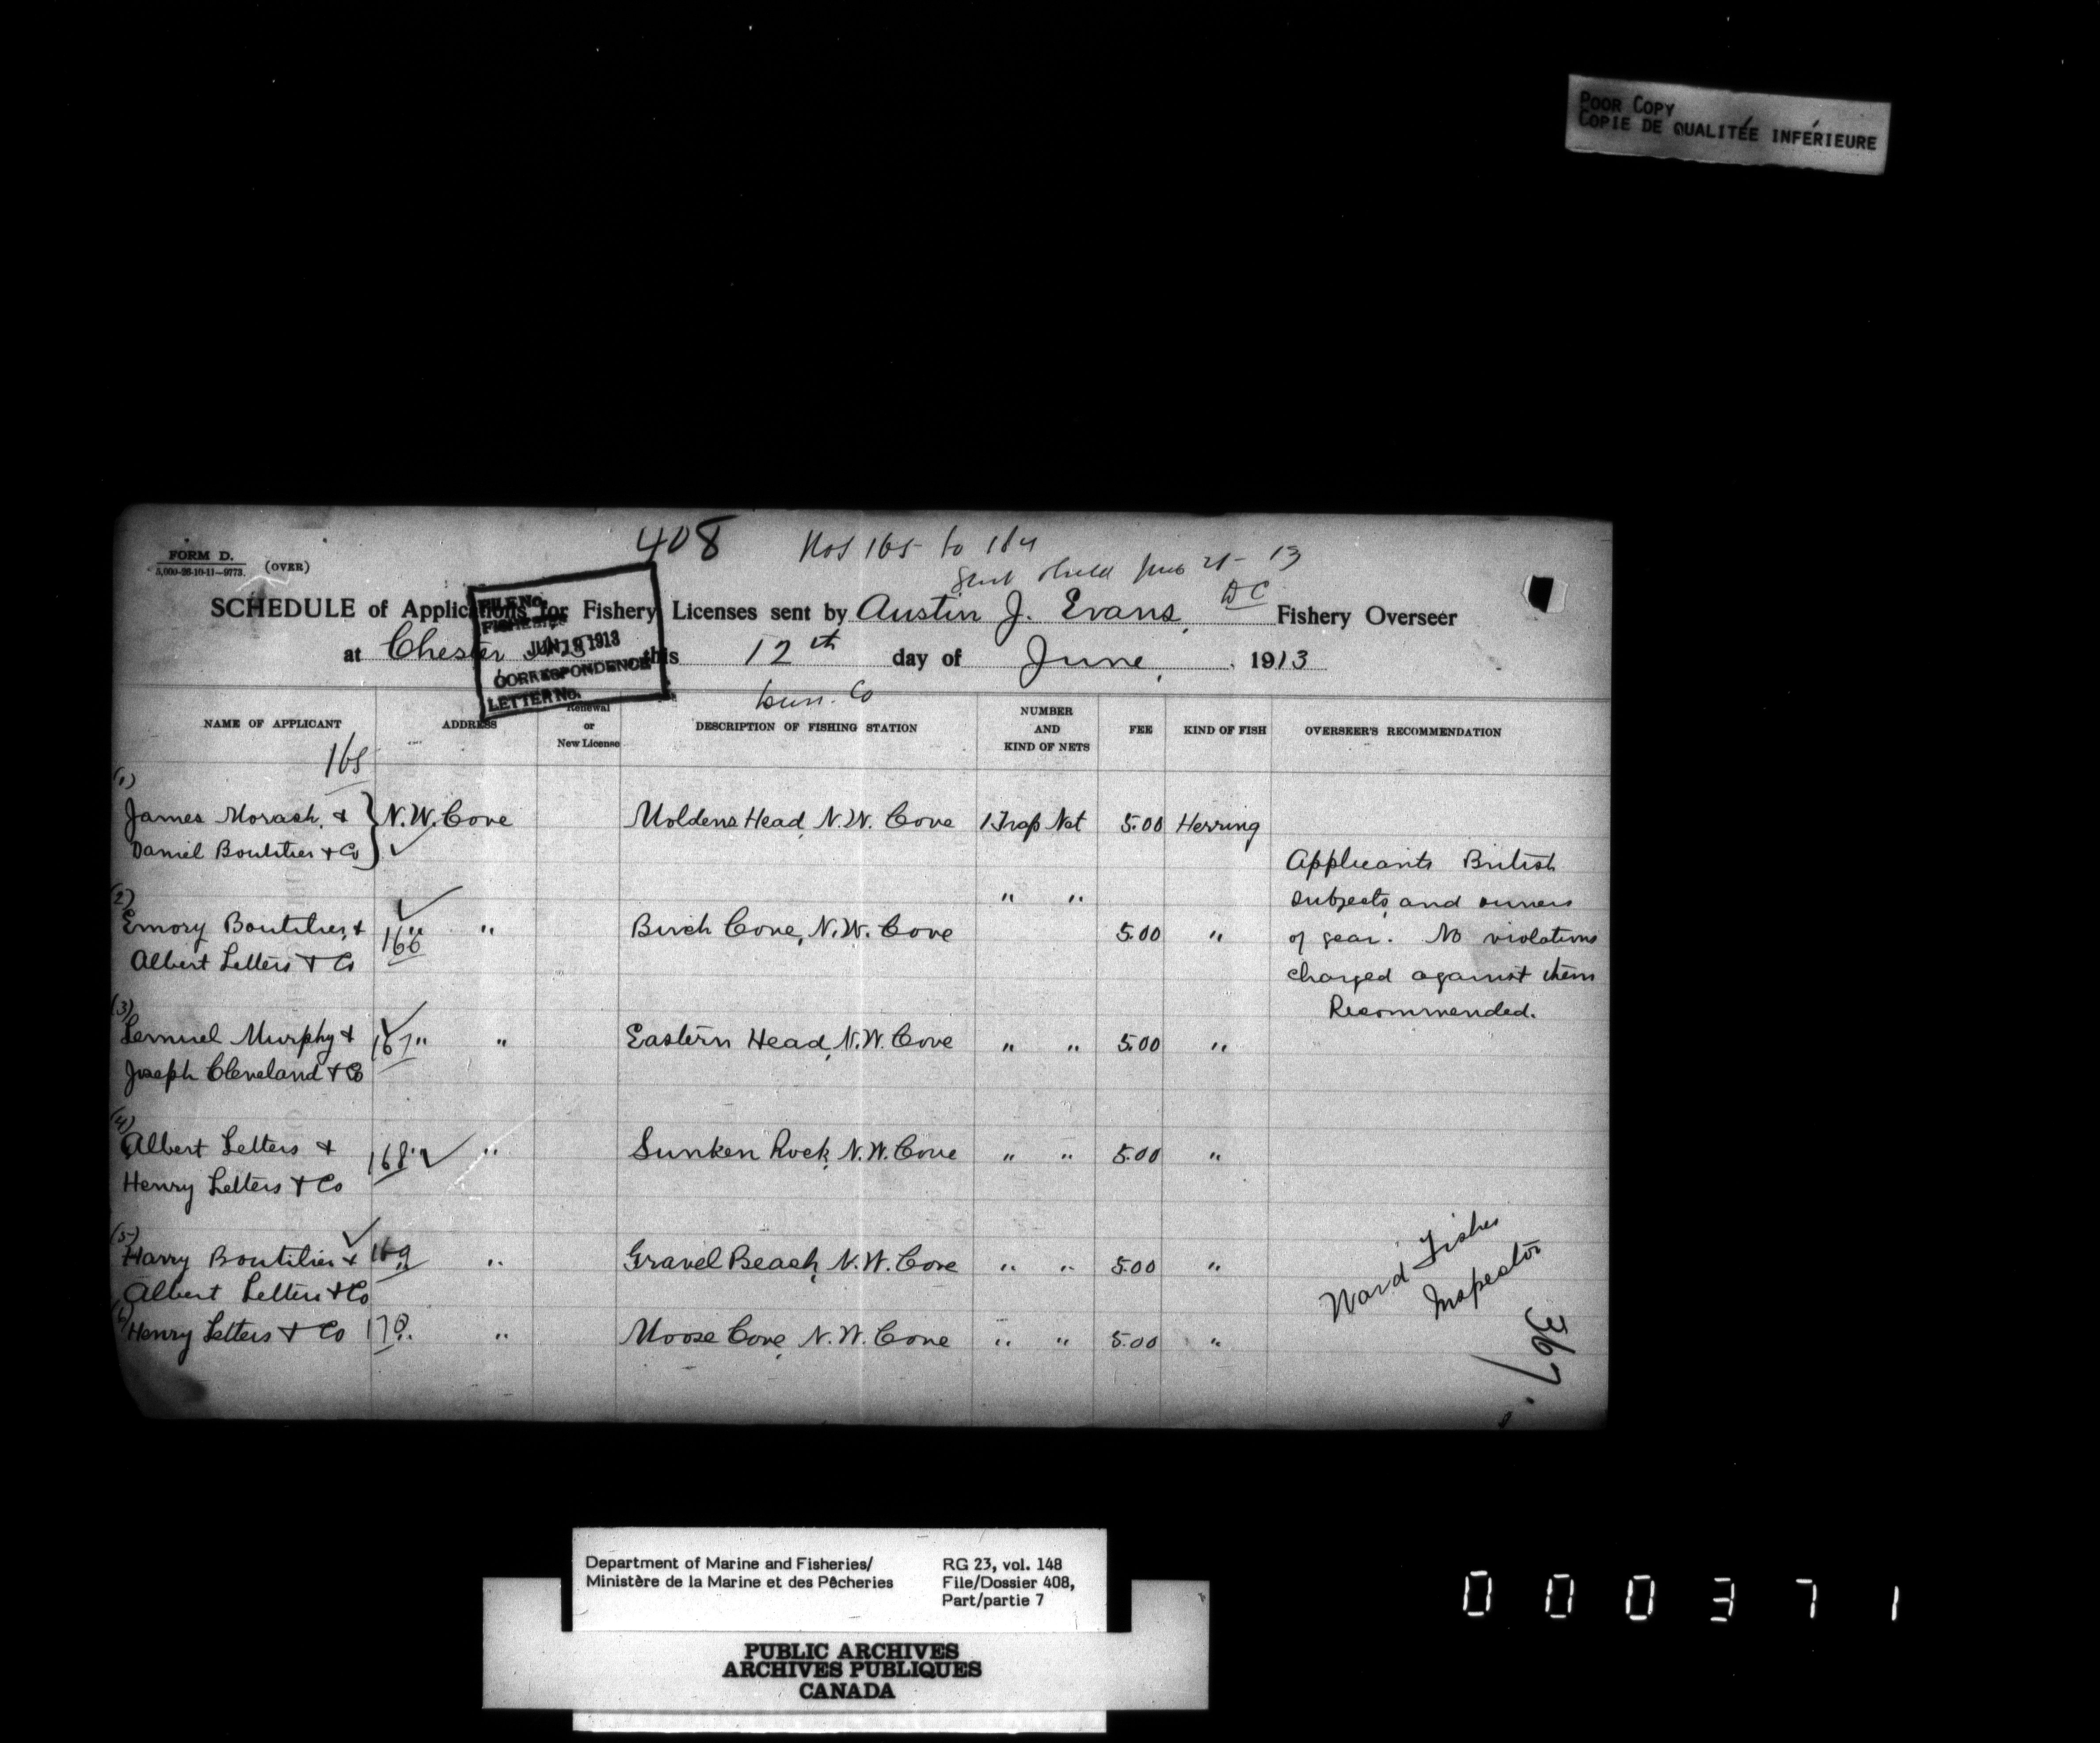 POOR COPY
COPIE DE QUALITÉE INFÉRIEURE
408 Nos 165 to 184
FORM D.
5,000-26-10-11—9773.
(OVER)
21 - 13
DC
SCHEDULE of Applications for Fishery Licenses sent by Austin J. Evans, Fishery Overseer
at Chester N.S. this 12th day of June, 1913
FILE No.
FISHERIES
JUN 19 1913
CORRESPONDENCE
LETTER No.
Lun. Co
NAME OF APPLICANT
ADDRESS
Renewal
or
New License
DESCRIPTION OF FISHING STATION
NUMBER
AND
KIND OF NETS
FEE
KIND OF FISH
OVERSEER'S RECOMMENDATION
165
(1)
James Morash, & N.W. Cove Moldens Head, N.W. Cove 1 Trap Net 5.00 Herring
Daniel Boutilier & Co
(2) " "
Emory Boutilier, & " " Birch Cove, N.W. Cove 5.00 "
166
Albert Letters & Co
(3)
Lemuel Murphy & 167 " " Eastern Head, N.W. Cove " " 5.00 "
Joseph Cleveland & Co
(4)
Albert Letters & 168 " " Sunken Rock, N.W. Cove " " 5.00 "
Henry Letters & Co
(5)
Harry Boutilier & 169 " " Gravel Beach, N.W. Cove " " 5.00 "
Albert Letters & Co
(6)
Henry Letters & Co 170 " " Moose Cove, N.W. Cove " " 5.00 "
Applicants British
subjects, and owners
of gear. No violations
charged against them
Recommended.
Ward Fisher
Inspector
367.
Department of Marine and Fisheries/
Ministère de la Marine et des Pêcheries
RG 23, vol. 148
File/Dossier 408,
Part/partie 7
PUBLIC ARCHIVES
ARCHIVES PUBLIQUES
CANADA
000371